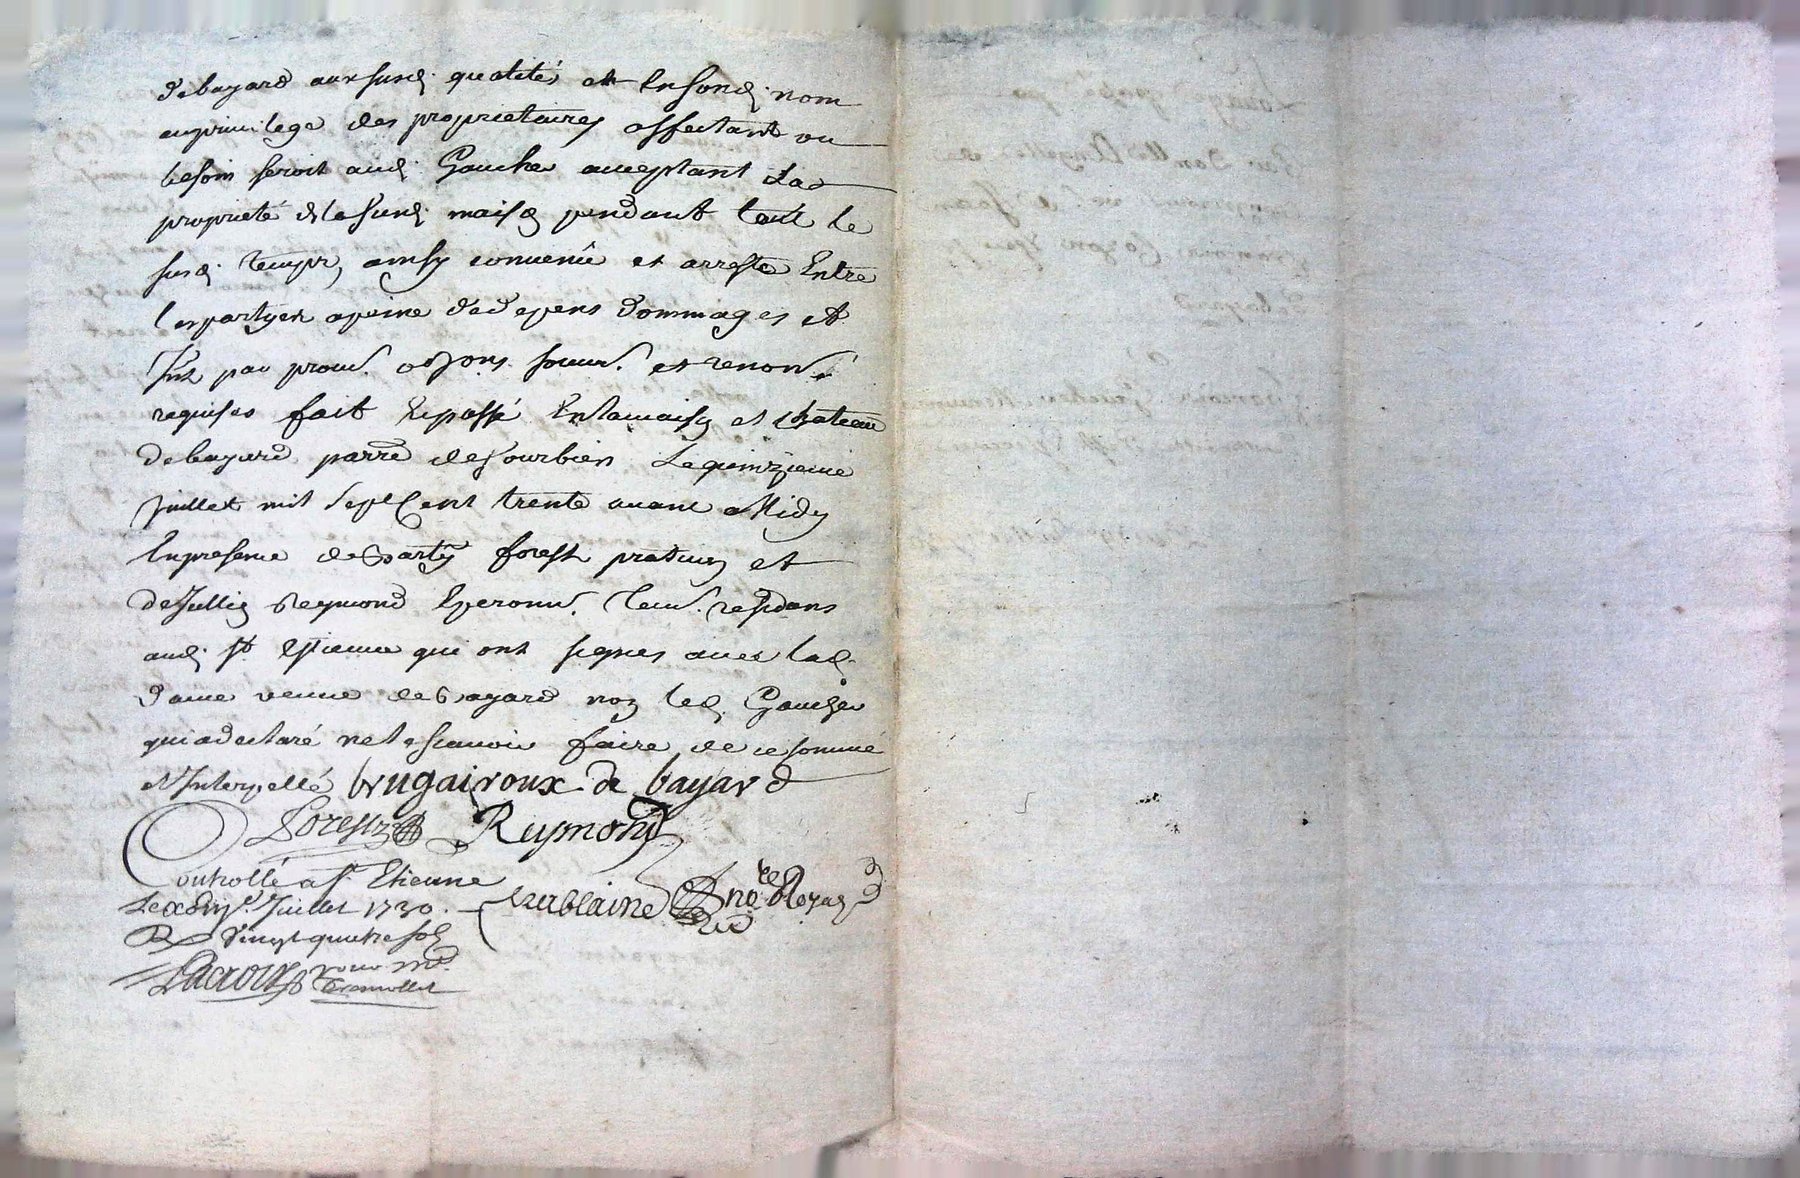 debayard aux susd. qualités et en sond. nom
auprivilege des proprietaires affectant ou
besoin seroit aud. Gaucher acceptant lad
proprieté de la susd. maison pendant tout le
susd. temps, ainsy convenû et arresté Entre
lespartyes apeine dedepens dommages et
Int par prom. soum. et renon.
requises fait et passé En lamaison et chateau
debayard parre. de Le quinzieme
Juillet mil sept Cent trente avant Midy
En presence de forest praticien et
de Jullien Reymond Eperonn. tem. residans
aud. st. Estienne qui ont signes avec lad.
dame veuve de Bayard non led. Gaucher
qui a declaré ne le scavoir faire de ce sommé
et Interpellé brugairoux de bayard
Forest Reymond
Controllé a st. Etienne
Le Juillet 1730.
R vingt quatre sols
verblaine nore Royal
Lacroix pour mr.